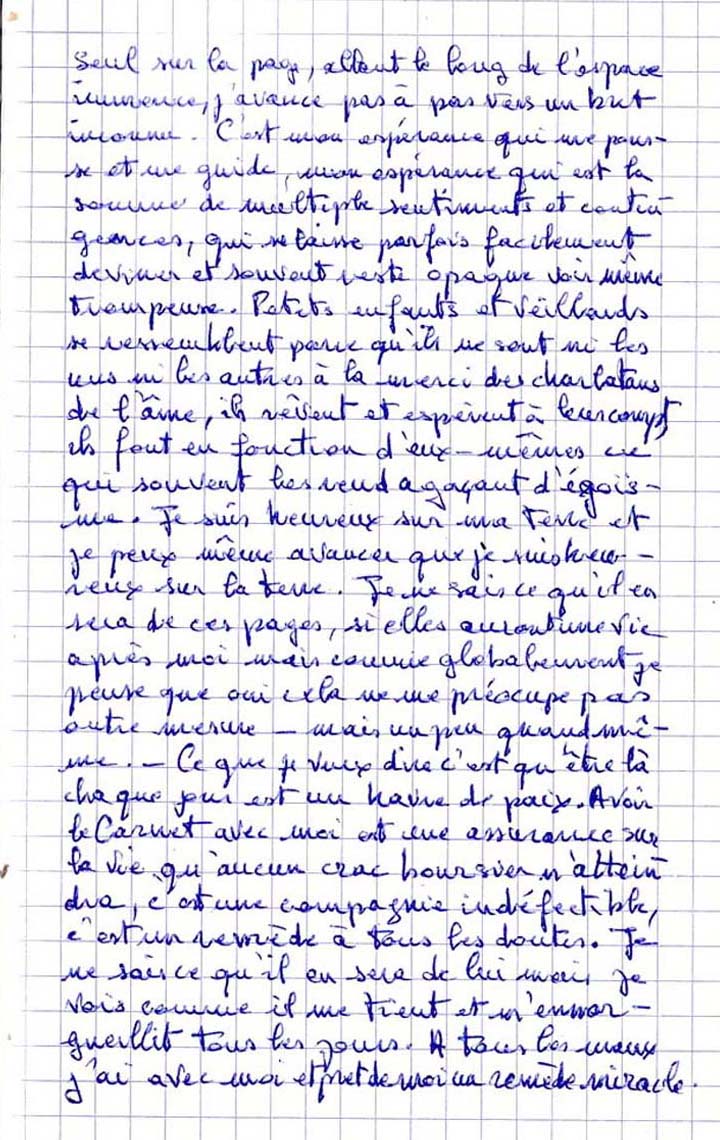 Seul sur la page, allant le long de l'espace
immense, j'avance pas à pas vers un but
inconnu. C'est mon espérance qui me pous-
se et me guide, mon espérance qui est la
somme de multiple sentiments et contin
gences, qui se laisse parfois facilement
deviner et souvent reste opaque voir même
trompeuse. Petits enfants et vieillards
se ressemblent parce qu'ils ne sont ni les
uns ni les autres à la merci des charlatans
de l'âme, ils rêvent et espèrent à leur compt,
ils font en fonction d'eux-mêmes ce
qui souvent les rend agaçant d'égoïs-
me. Je suis heureux sur ma Terre et
je peux même avancer que je suis heu-
reux sur la terre. Je ne sais ce qu'il en
sera de ces pages, si elles auront une vie
après moi mais comme globalement je
pense que oui cela ne me préocupe pas
outre mesure – mais un peu quand mê-
me. – Ce que je veux dire c'est qu'être là
chaque jour est un havre de paix. Avoir
le Carnet avec moi est une assurance sur
la vie qu'aucun crac boursier n'attein
dra, c'est une compagnie indéfectible,
c'est un remède à tous les doutes. Je
ne sais ce qu'il en sera de lui mais je
vois comme il me tient et m'enor-
gueillit tous les jours. A tous les maux
j'ai avec moi et pret de moi un remède miracle.